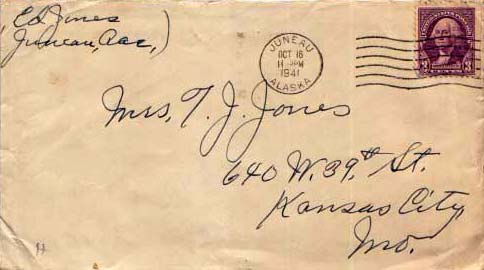 Ed Jones
Juneau,
JUNEAU
OCT 16
PM
1941
ALASKA
3 3
Mrs. T. J. Jones
640 W. 39th St.
Kansas City
Mo.